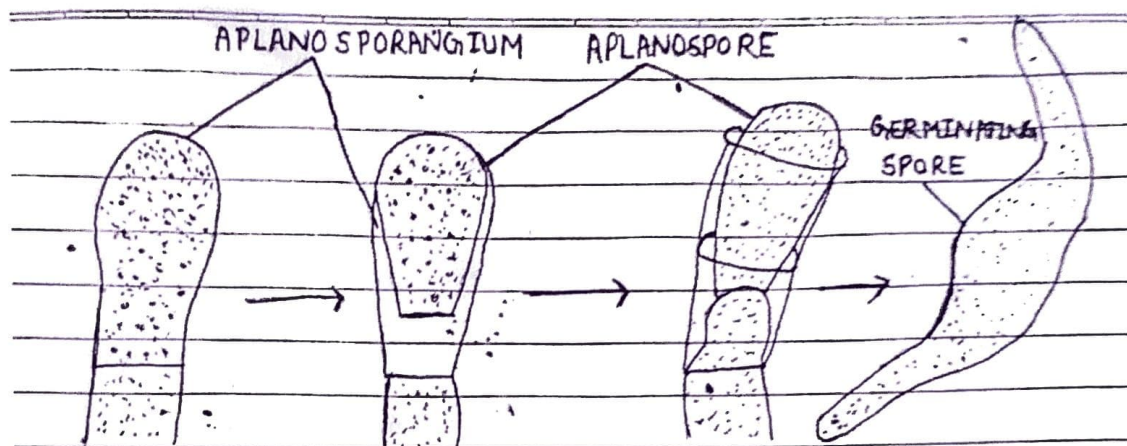 APLANOSPORANGIUM
APLANOSPORE
GERMINATING
SPORE